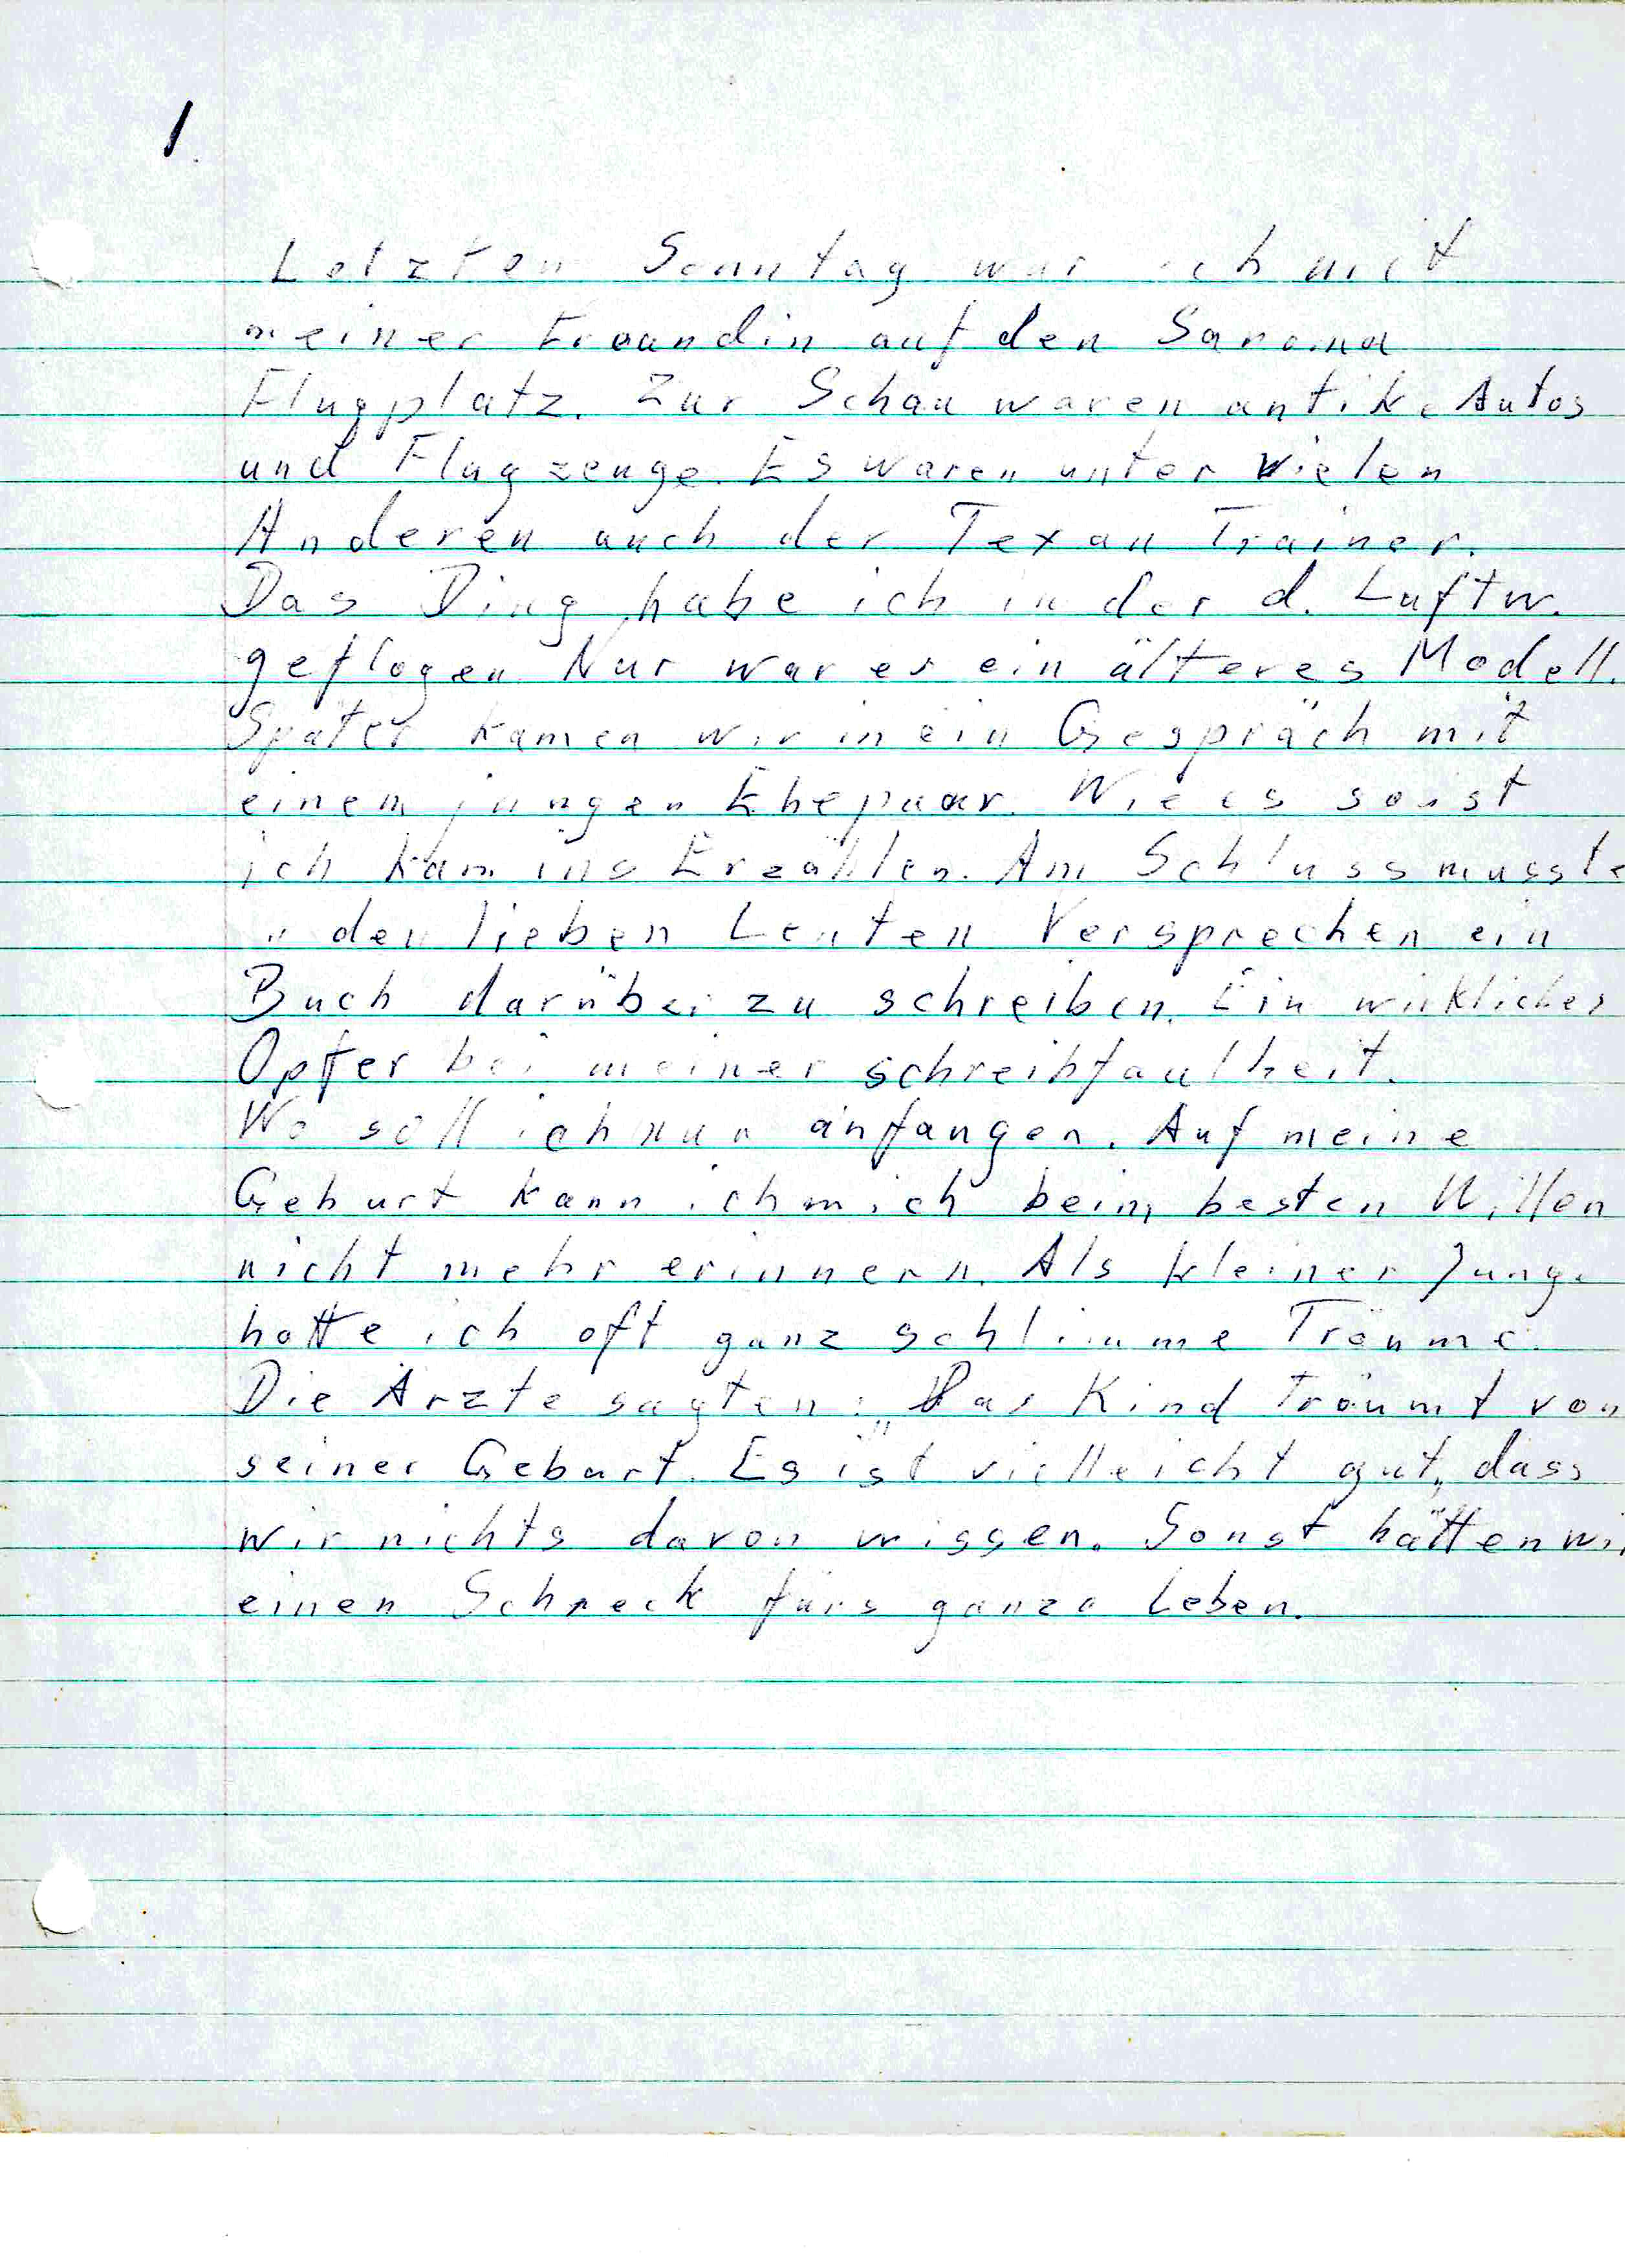 1.
Letzten Sonntag war ich mit
meiner Freundin auf den
Flugplatz. Zur Schau waren antike Autos
und Flugzeuge. Es waren unter vielen
Anderen auch der Texan Trainer.
Das Ding habe ich in der d. Luftw.
geflogen. Nur war es ein älteres Modell.
Später kamen wir in ein Gespräch mit
einem jungen Ehepaar. Wie es
ich kam ins Erzählen. Am Schluss musste
den lieben Leuten Versprechen ein
Buch darüber zu schreiben. Ein wirkliches
Opfer bei meiner schreibfaulheit.
Wo soll ich nun anfangen. Auf meine
Geburt kann ich mich beim besten Willen
nicht mehr erinnern. Als kleiner Junge
hatte ich oft ganz schlimme Träume.
Die Ärzte sagten: „Das Kind Träumt von
seiner Geburt. Es ist vielleicht gut, dass
wir nichts davon wissen. Sonst hätten wir
einen Schreck fürs ganze Leben.